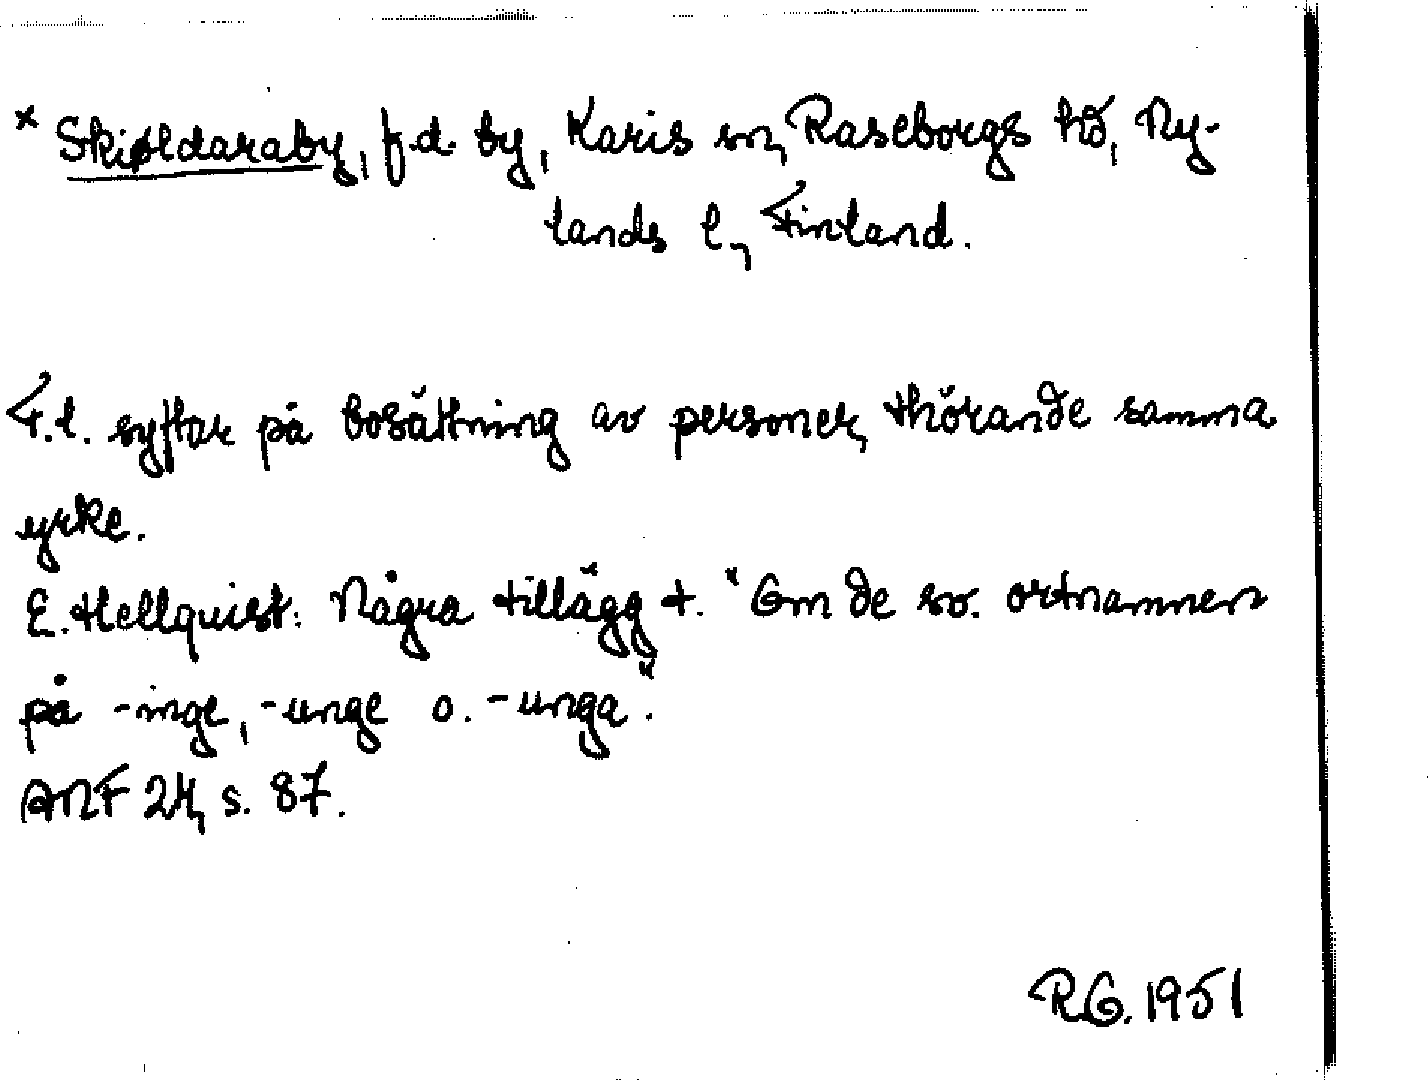 × Skiøldaraby, f.d. by, Karis sn, Raseborgs hd, Ny-
lands l., Finland.
F.l. syftar på bosättning av personer, thörande samma
yrke.
E. Hellquist: Några tillägg t. "Om de sv. ortnamnen
på -inge, -unge o. -unga".
ANF 24, s. 87.
R.G. 1951